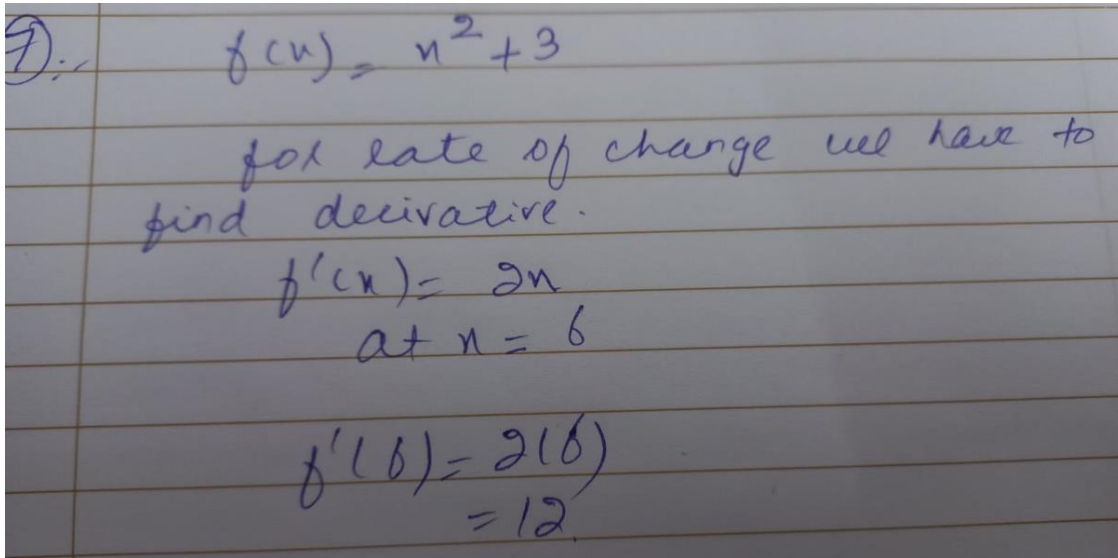 7):-
f(x) = x² + 3
for rate of change we have to
find derivative.
f'(x) = 2x
at x = 6
f'(6) = 2(6)
= 12.